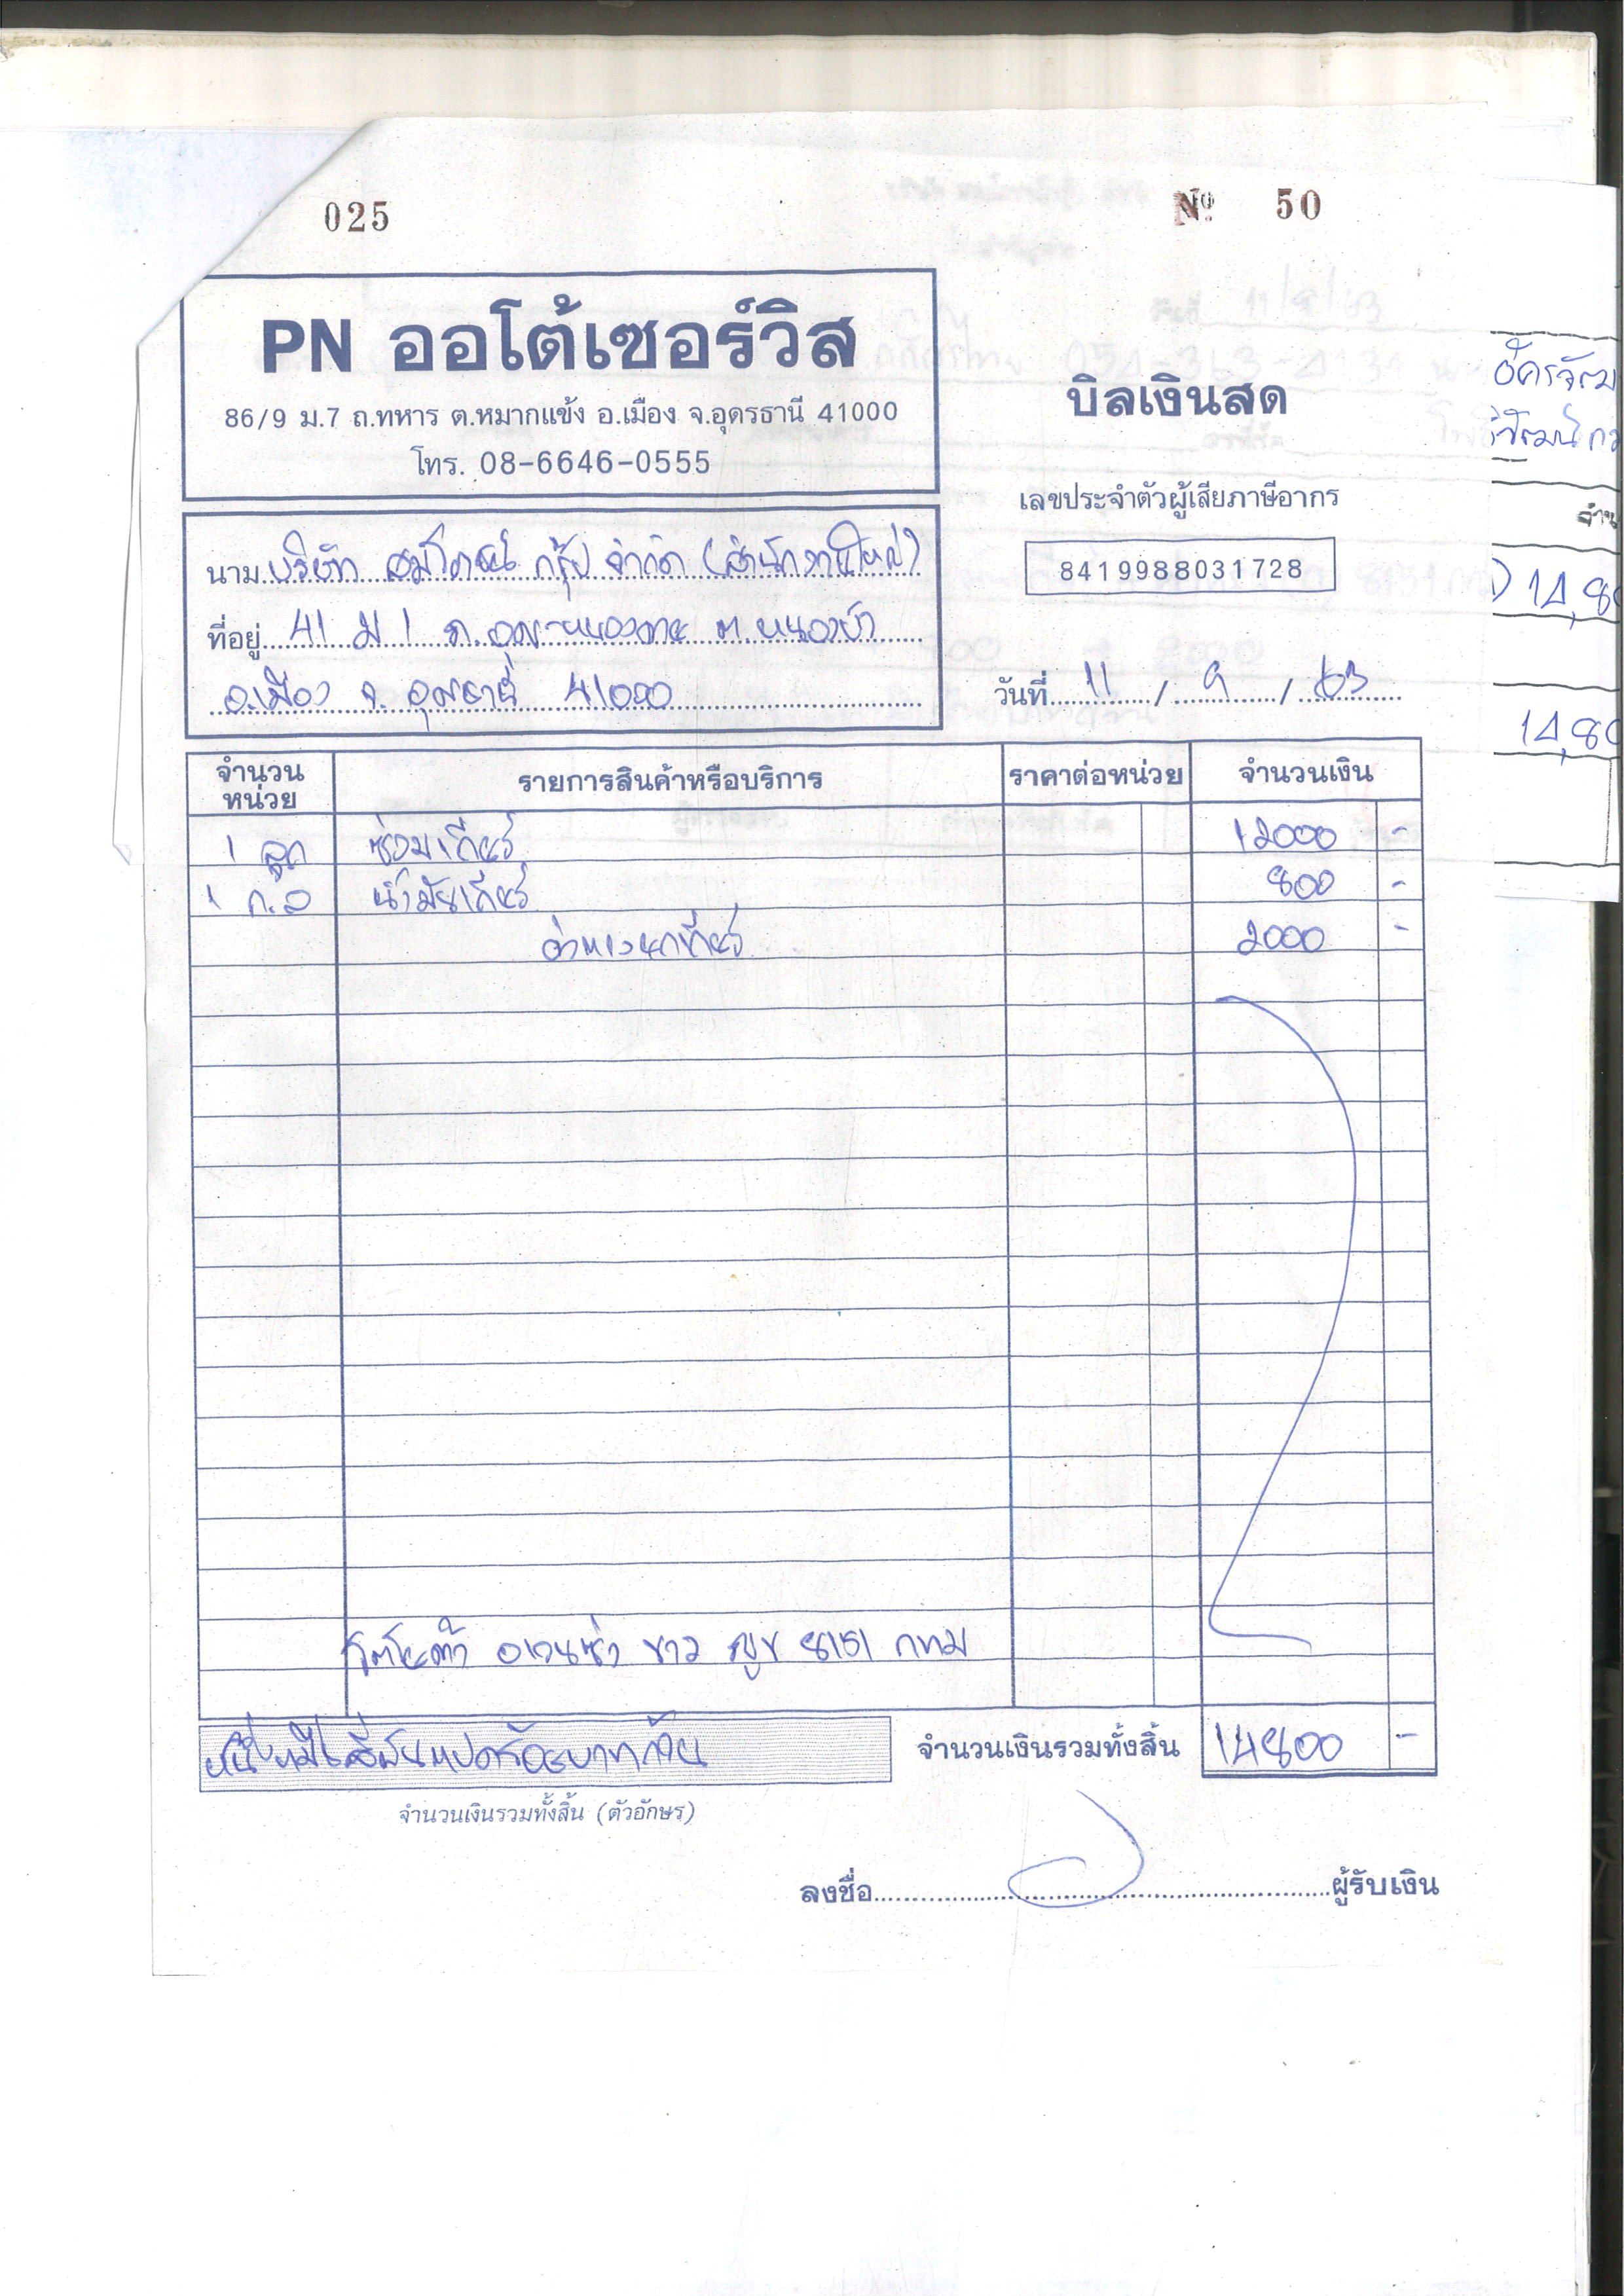 025
No 50
PN ออโต้เซอร์วิส
86/9 ม.7 ถ.ทหาร ต.หมากแข้ง อ.เมือง จ.อุดรธานี 41000
โทร. 08-6646-0555
บิลเงินสด
เลขประจำตัวผู้เสียภาษีอากร
8419988031728
นาม บริษัท กรุ๊ป จำกัด (สำนักงานใหญ่)
ที่อยู่ 41 ม 1 ต.หนองบัว
อ.เมือง จ. อุดรธานี 41000
วันที่ 11 / 9 / 63
จำนวนหน่วย รายการสินค้าหรือบริการ ราคาต่อหน่วย จำนวนเงิน
1 ลูก ซ่อมเกียร์ 12000 -
1 ก.ล น้ำมันเกียร์ 800 -
ค่าแรงยกเกียร์ 2000 -
โตโยต้า อแวนซ่า ขาว ญข 8151 กทม
หนึ่งหมื่นสี่พันแปดร้อยบาทถ้วน
จำนวนเงินรวมทั้งสิ้น 14800 -
จำนวนเงินรวมทั้งสิ้น (ตัวอักษร)
ลงชื่อ ผู้รับเงิน